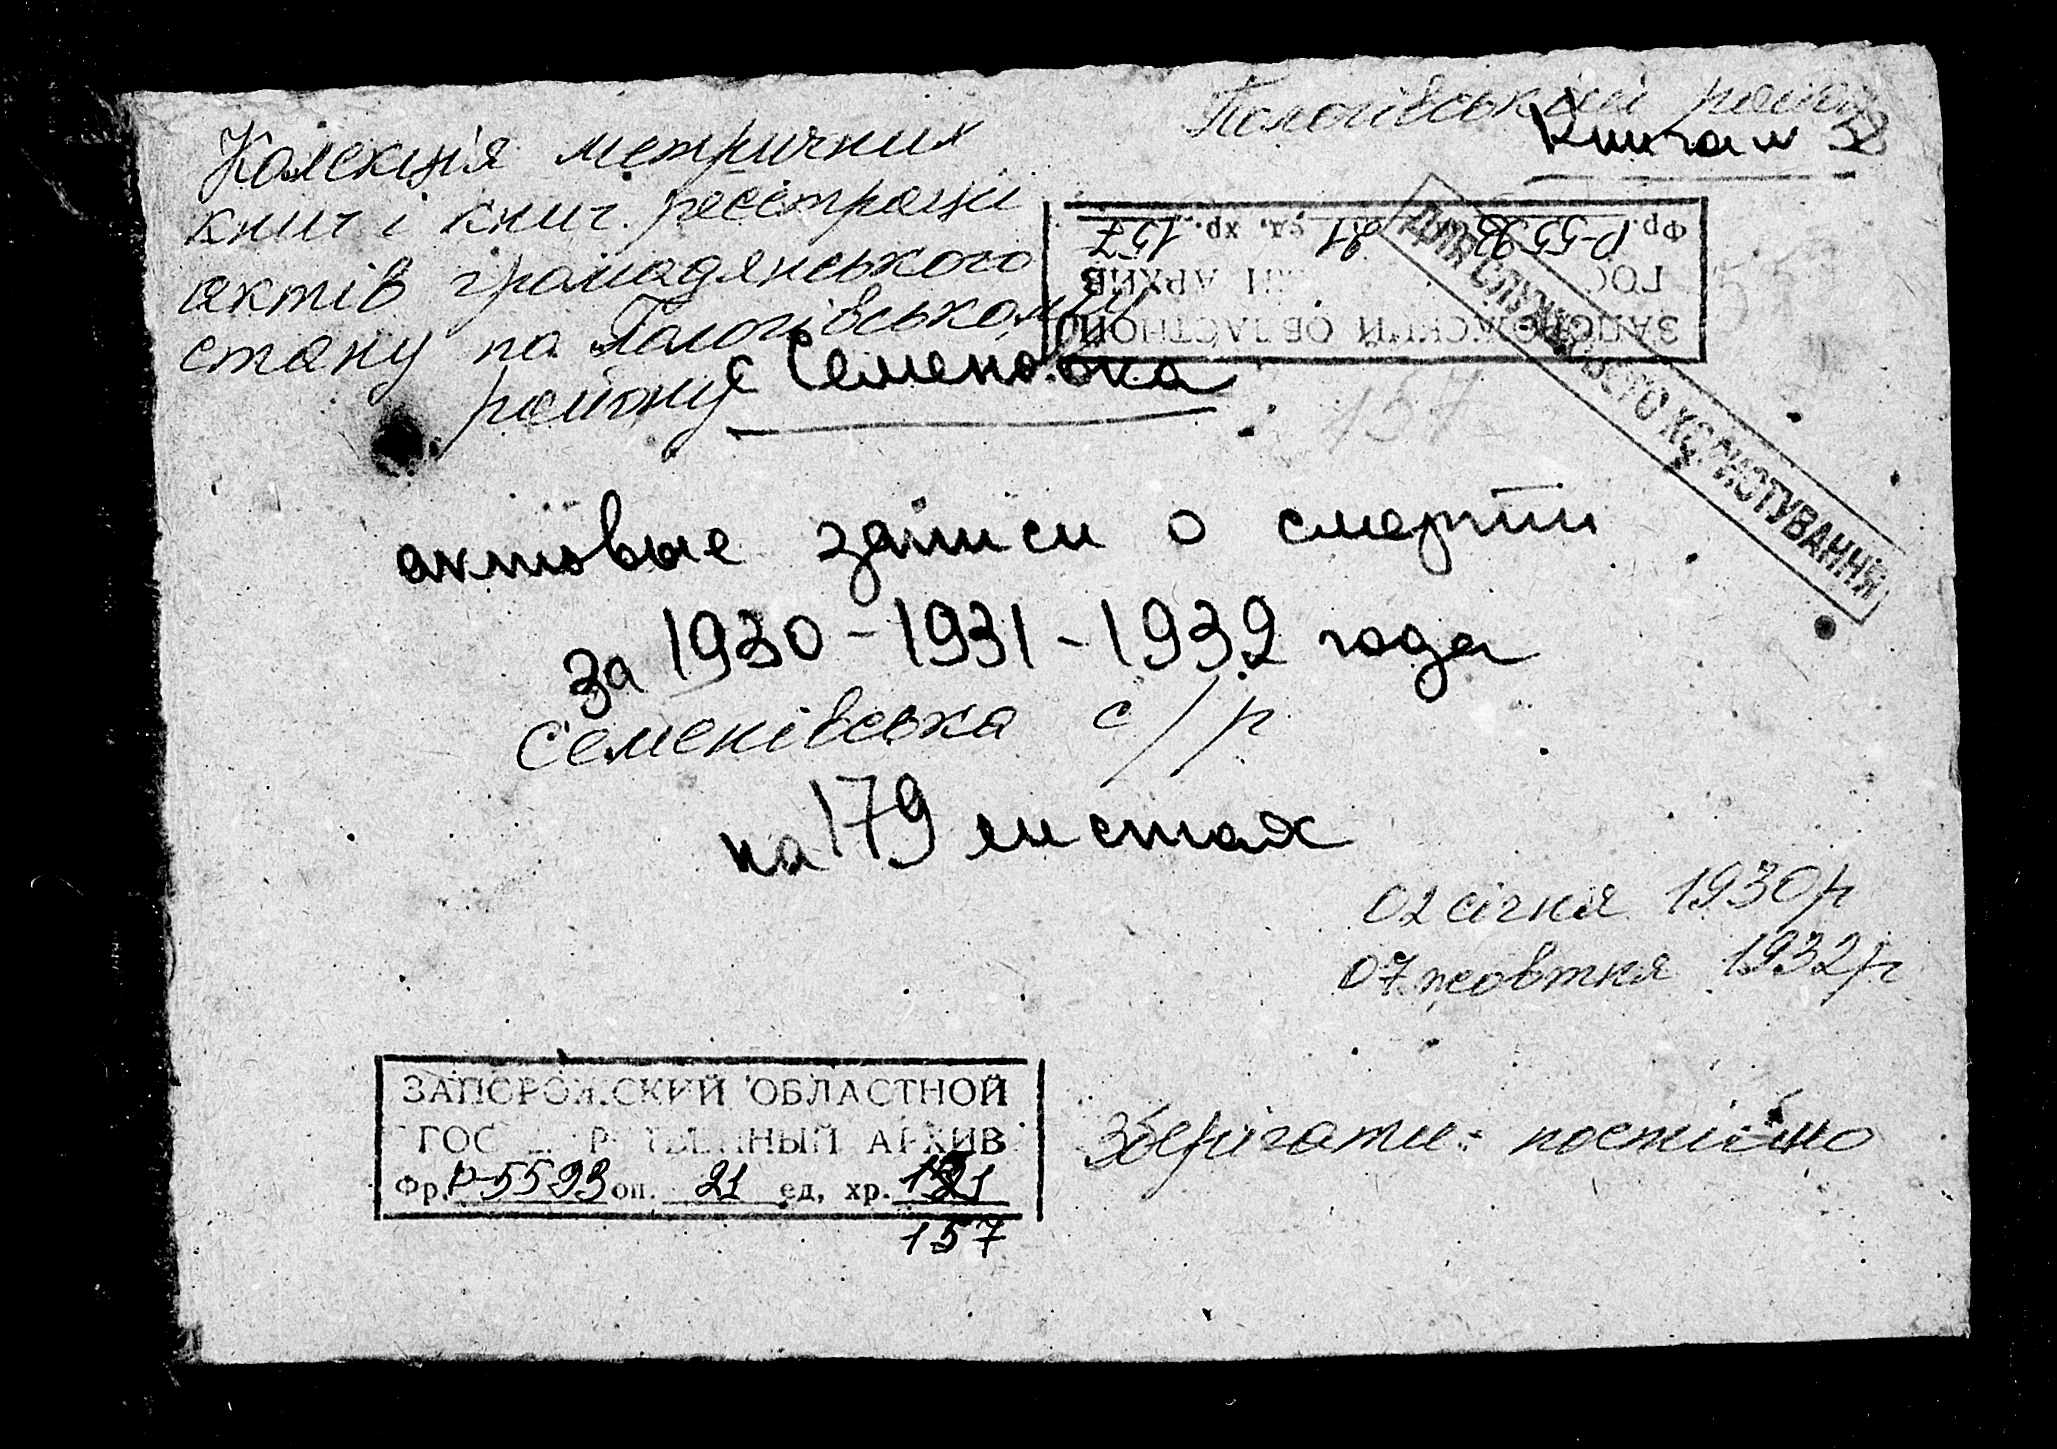 Пологівський район
Книга № 52
Колекція метричних
книг і книг реєстрації
актів громадянського
стану по Пологівському
району
с Семеновка
ЗАПОРОЖСКИЙ ОБЛАСТНОЙ
ГОС АРХИВ
Фр. Р-5593 оп. 21 ед. хр. 157
ДЛЯ СЛУЖБОВОГО КОРИСТУВАННЯ
157
актовые записи о смерти
за 1930-1931-1932 года
Семенівська с/р
на 179 листах
02 січня 1930р
07 жовтня 1932р
ЗАПОРОЖСКИЙ ОБЛАСТНОЙ
ГОСУДАРСТВЕННЫЙ АРХИВ
Фр. Р-5593 оп. 21 ед, хр.
157
Зберігати: постійно